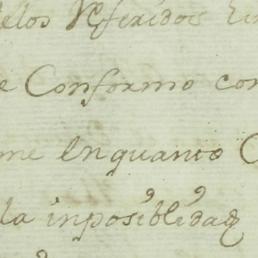 delos Referidos
e Conformo con
me enquanto
la inposiblidad